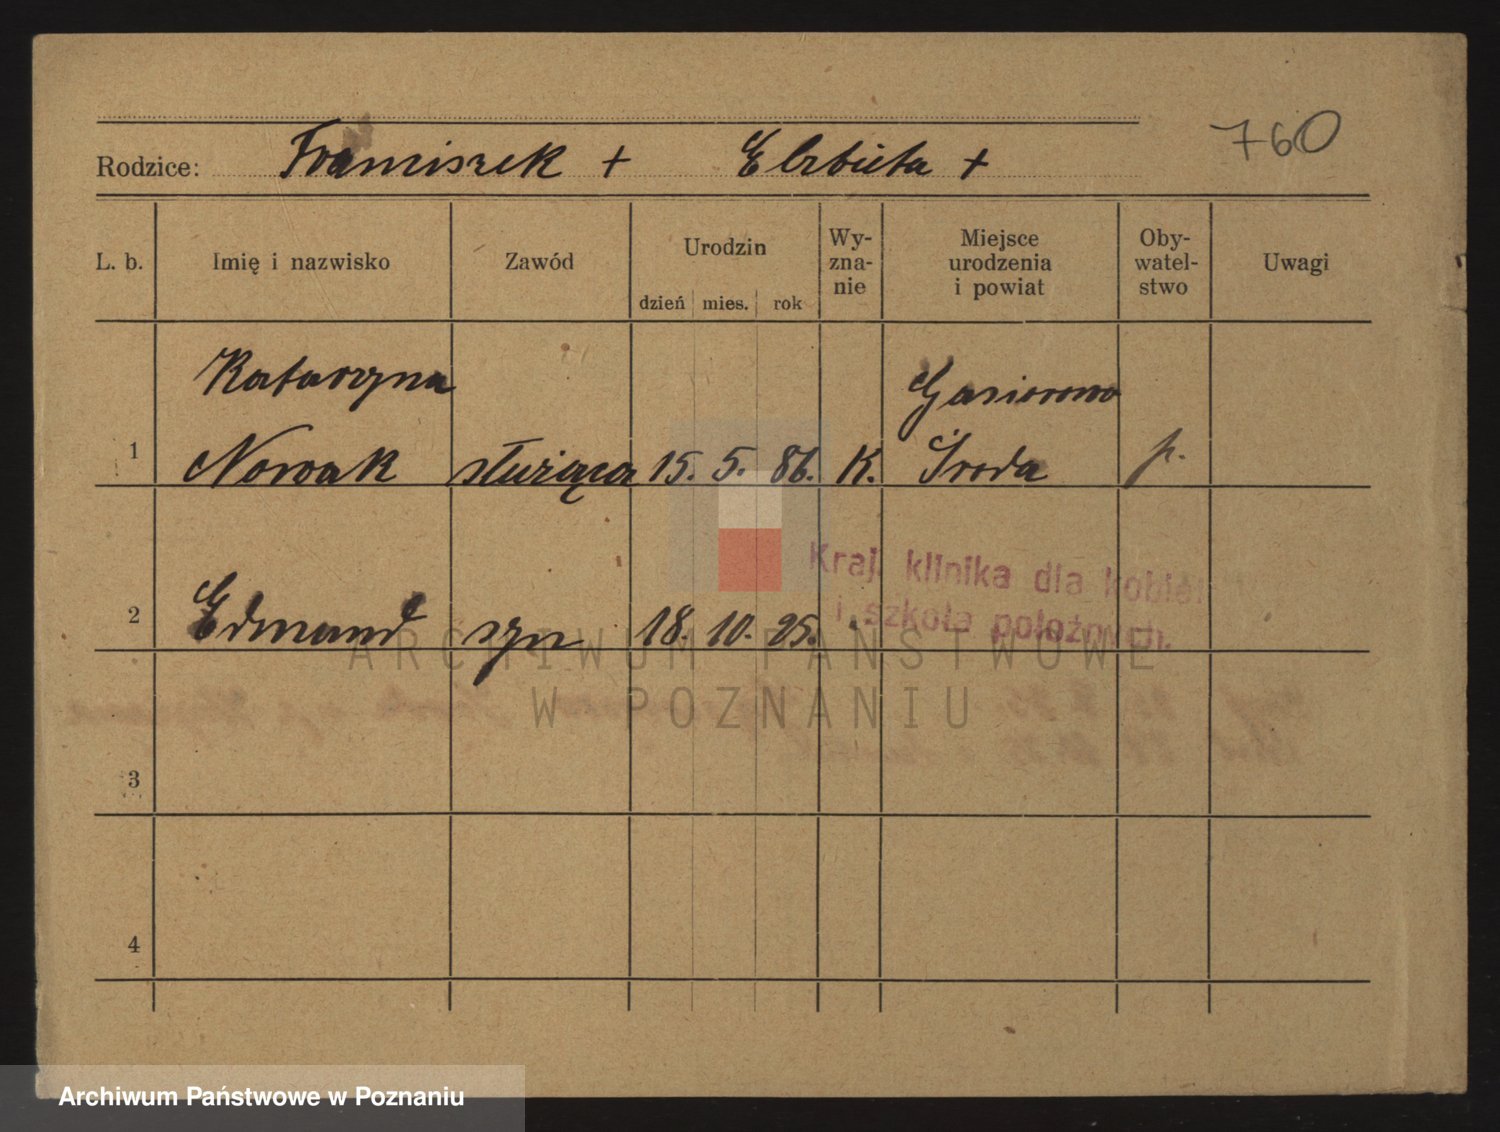 760
Rodzice: Franciszek + Elzbieta +
L. b. Imię i nazwisko Zawód Urodzin dzień mies. rok Wy-zna-nie Miejsce urodzenia i powiat Oby-watel-stwo Uwagi
Katarzyna Gasiorowo
1 Nowak służąca 15. 5. 86. K. Środa p.
Kraj. klinika dla kobiet
i szkoła położnych.
2 Edmund syn 18. 10. 25.
ARCHIWUM PAŃSTWOWE
W POZNANIU
3
4
Archiwum Państwowe w Poznaniu